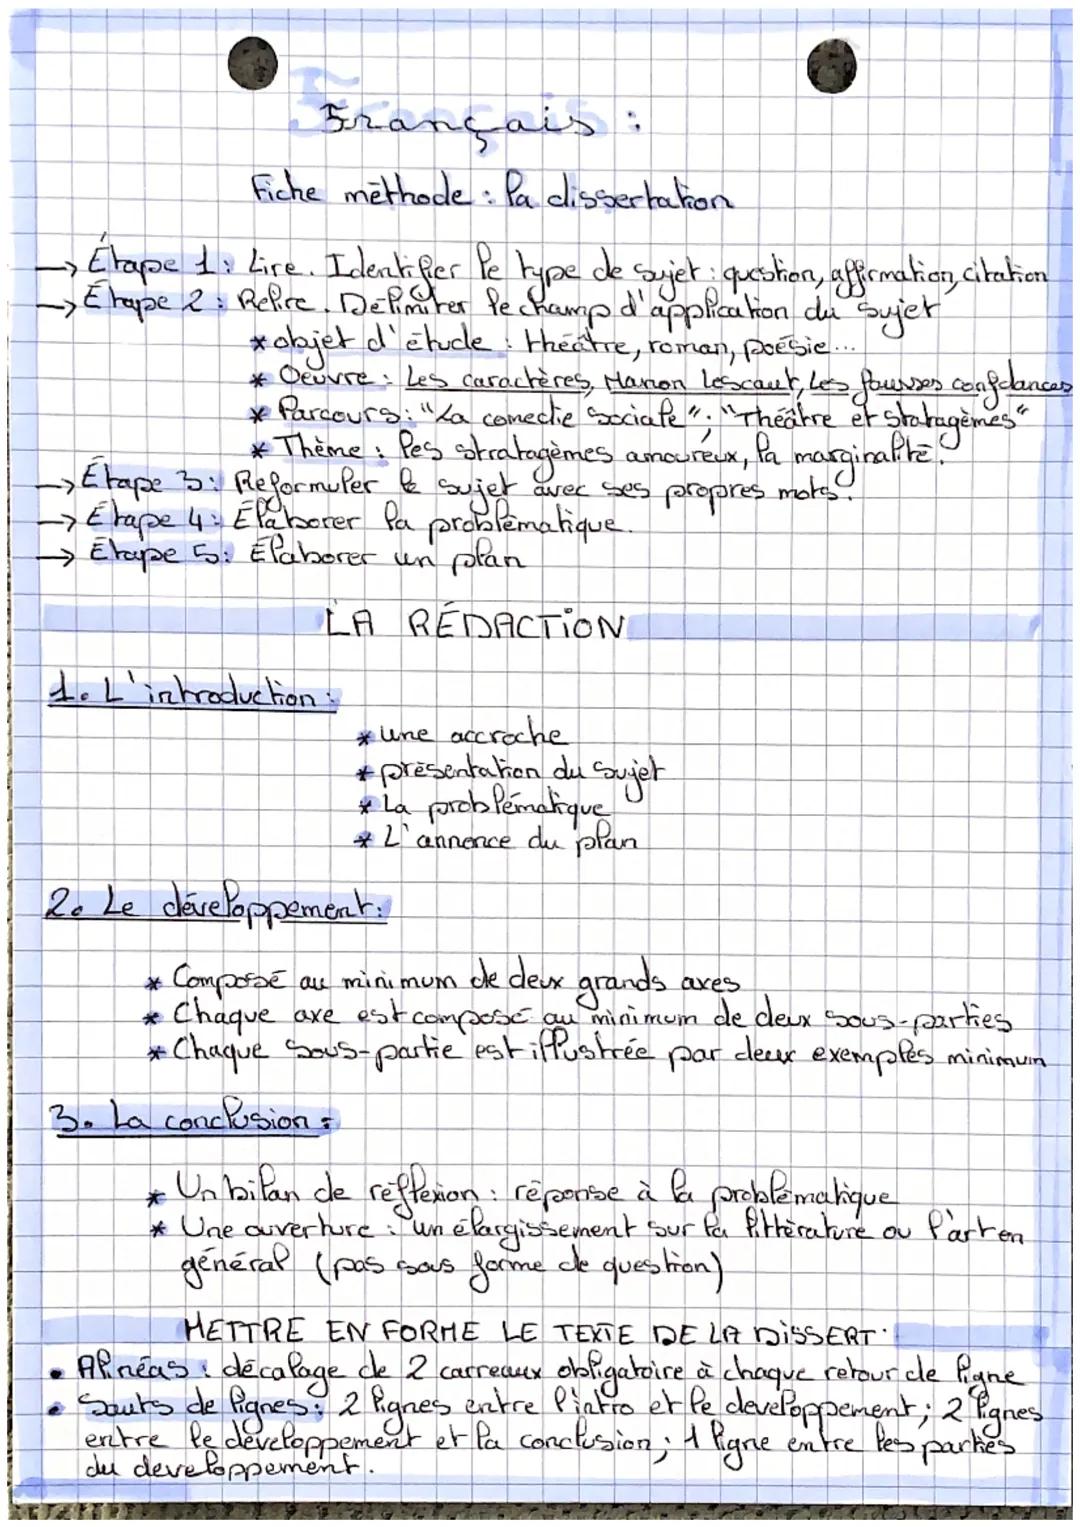 Français :
Fiche méthode : la dissertation
→ Étape 1 : Lire. Identifier le type de sujet : question, affirmation, citation
→ Étape 2 : Relire. Délimiter le champ d'application du sujet
* objet d'étude : théâtre, roman, poésie...
* Oeuvre : Les caractères, Manon Lescaut, Les fausses confidances
* Parcours : "La comedie sociale" ; "Théâtre et statagèmes"
* Thème : les stratagèmes amoureux, la marginalité.
→ Étape 3 : Reformuler le sujet avec ses propres mots.
→ Étape 4 : Élaborer la problématique.
→ Étape 5 : Élaborer un plan
LA RÉDACTION
1. L'introduction :
* une accroche
* présentation du sujet
* La problématique
* L'annonce du plan
2. Le développement :
* Composé au minimum de deux grands axes
* Chaque axe est composé au minimum de deux sous-parties
* Chaque sous-partie est illustrée par deux exemples minimum
3. La conclusion :
* Un bilan de réflexion : réponse à la problématique
* Une ouverture : un élargissement sur la littérature ou l'art en
général (pas sous forme de question)
METTRE EN FORME LE TEXTE DE LA DISSERT.
• Alinéas : décalage de 2 carreaux obligatoire à chaque retour de ligne
• Sauts de lignes : 2 lignes entre l'intro et le développement ; 2 lignes
entre le développement et la conclusion ; 1 ligne entre les parties
du developpement.